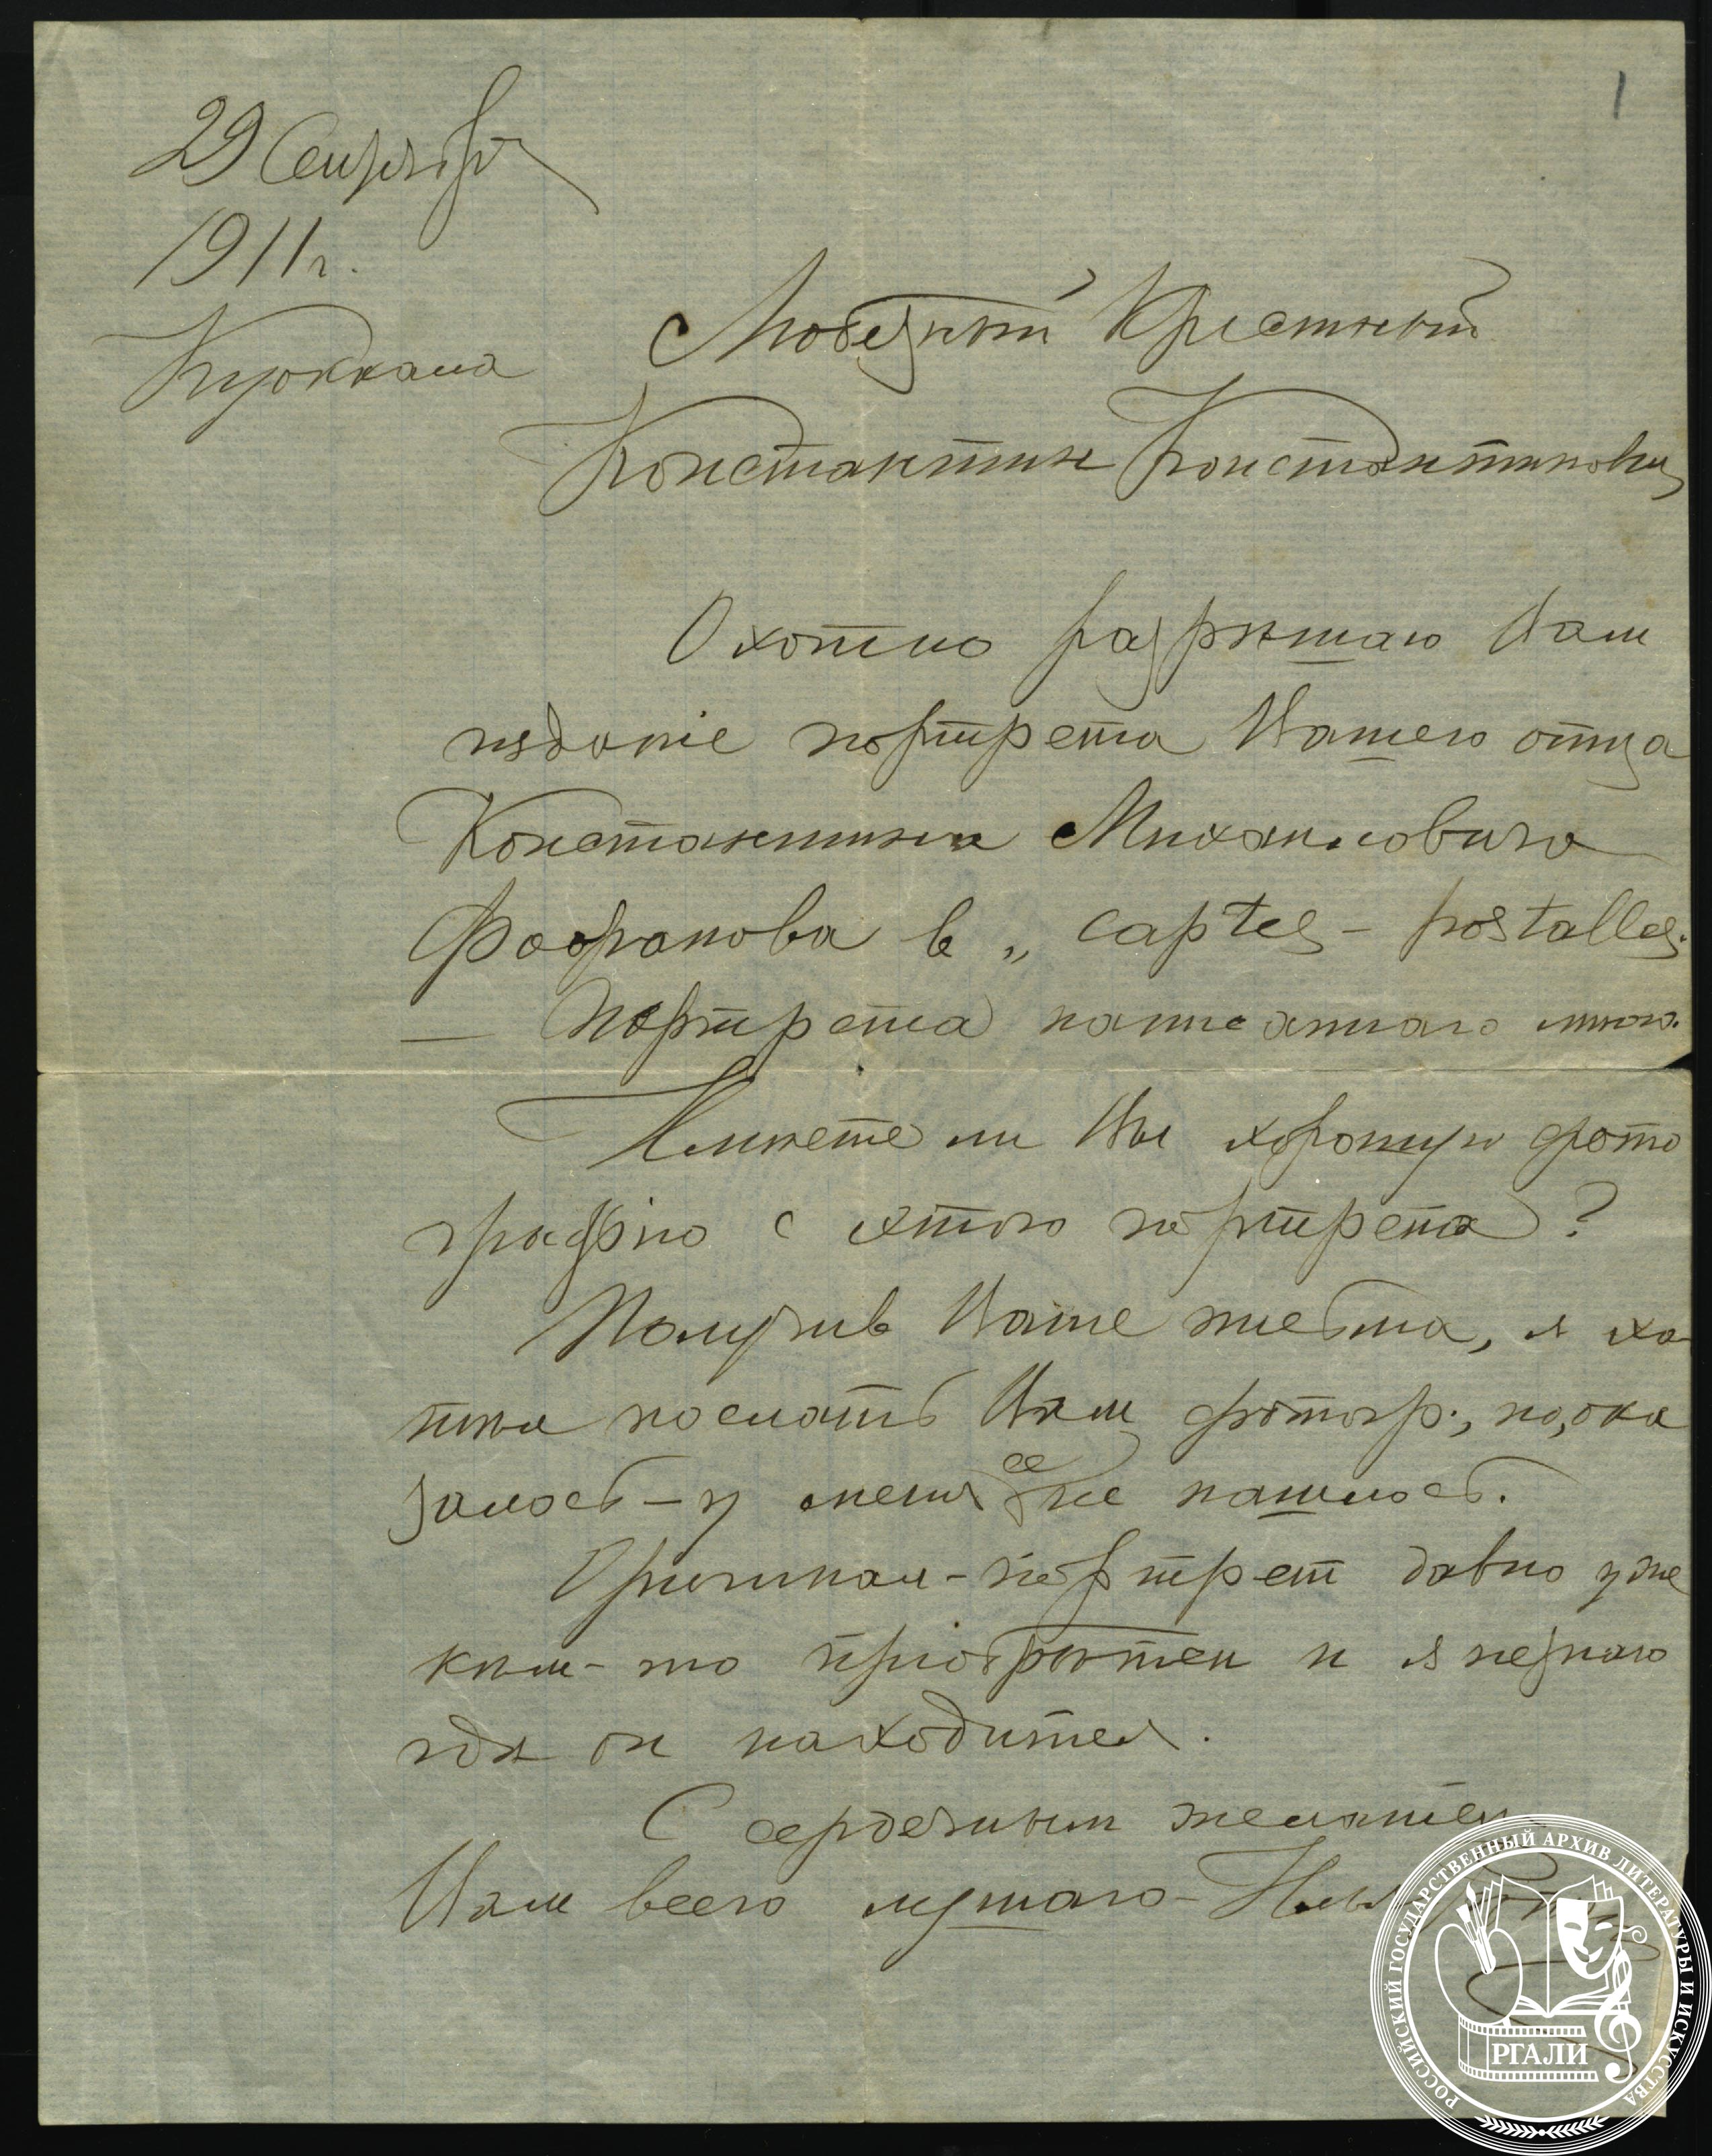 1
29 Сентября
1911 г.
Куоккала
Любезный Крестный
Константин Константинович
Охотно разрѣшаю Вам
изданіе портрета Вашего отца
Константина Михаиловича
Фофанова в „cartes-postalles.
— Портрета написаннаго мною.
Имѣете ли Вы хорошую фото
графію с этого портрета?
Получив Ваше письмо, я хо
тѣл послать Вам фотогр., но, ока
залось – у меня ее не нашлось.
Оригинал-портрет давно уже
кѣм-то пріобрѣтен и я не знаю
гдѣ он находится.
С сердечным желанием
Вам всего лучшаго – Илья Репин
РОССИЙСКИЙ ГОСУДАРСТВЕННЫЙ АРХИВ ЛИТЕРАТУРЫ И ИСКУССТВА
РГАЛИ